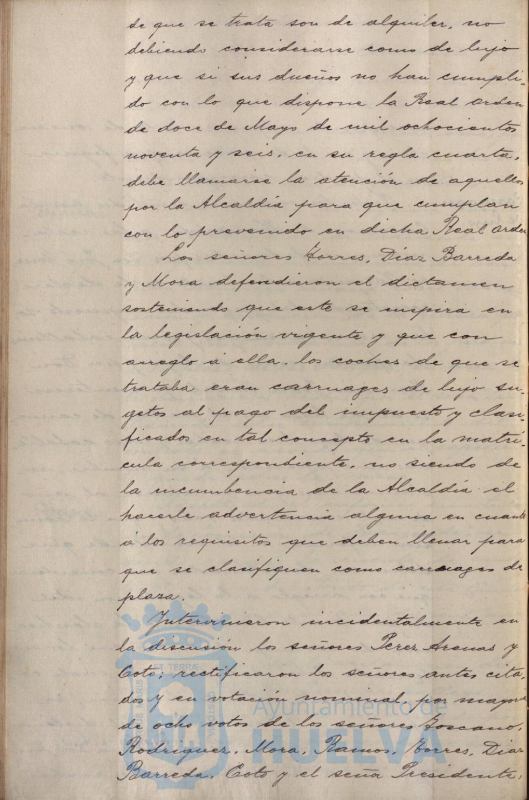 de que se trata son de alquiler, no
debiendo considerarse como de lujo
y que si sus dueños no han cumpli-
do con lo que dispone la Real orden
de doce de Mayo de mil ochocientos
noventa y seis, en su regla cuarta,
debe llamarse la atención de aquellos
por la Alcaldía para que cumplan
con lo prevenido en dicha Real orden
Los señores Torres, Díaz Barreda
y Mora defendieron el dictamen
sosteniendo que este se inspira en
la legislación vigente y que con
arreglo á ella, los coches de que se
trataba eran carruages de lujo su-
getos al pago del impuesto y clasi-
ficados en tal concepto en la matrí-
cula correspondiente, no siendo de
la incumbencia de la Alcaldía el
hacerle advertencia alguna en cuanto
á los requisitos que deben llenar para
que se clasifiquen como carruages de
plaza.
Intervinieron incidentalmente en
la discusión los señores Perez Arenas y
Coto; rectificaron los señores antes cita-
dos y en votación nominal, por mayoría
de ocho votos de los señores Toscano,
Rodriguez, Mora, Ramos, Torres, Díaz
Barreda, Coto y el señor Presidente,
Ayuntamiento de
HUELVA